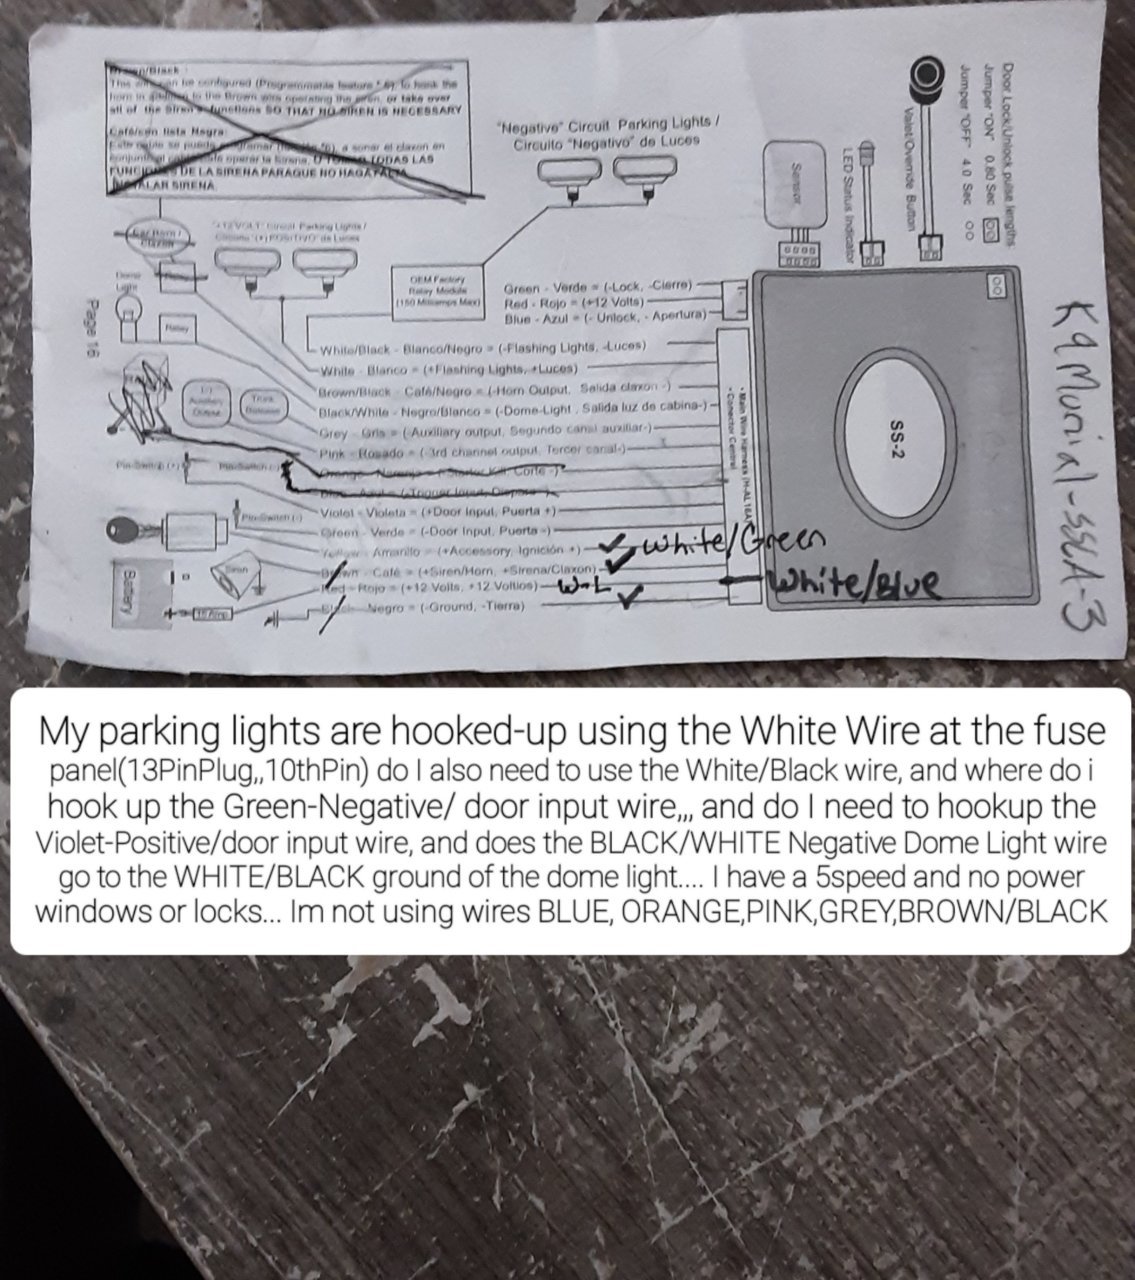 Brown/Black :
This wire can be configured (Programmable feature * 6), to honk the
horn in addition to the Brown wire operating the siren, or take over
all of the Siren's functions SO THAT NO SIREN IS NECESSARY
Café/con lista Negra:
Este cable se puede programar a sonar el claxon en
conjunto operar la sirena, O TODAS LAS
FUNCIONES DE LA SIRENA PARAQUE NO HAGA FALTA
INSTALAR SIRENA.
"Negative" Circuit Parking Lights /
Circuito "Negativo" de Luces
Door Lock/Unlock pulse lengths
Jumper "ON" 0.80 Sec
Jumper "OFF" 4.0 Sec
Valet/Override Button
LED Status Indicator
Sensor
Car Horn /
Claxon
"+12 VOLT" Circuit Parking Lights /
Circuito "(+) POSITIVO" de Luces
OEM Factory
Relay Module
(150 Milliamps Max)
Dome
Light
Relay
Page 16
Green - Verde = (-Lock, -Cierre)
Red - Rojo = (+12 Volts)
Blue - Azul = (- Unlock, - Apertura)
White/Black - Blanco/Negro = (-Flashing Lights, -Luces)
White - Blanco = (+Flashing Lights, +Luces)
Brown/Black - Café/Negro = (-Horn Output, Salida claxon -)
Black/White - Negro/Blanco = (-Dome-Light , Salida luz de cabina-)
Grey - Gris = (-Auxiliary output, Segundo canal auxiliar-)
Pink - Rosado = (-3rd channel output, Tercer canal-)
Orange - Naranja = (-Starter Kill, Corte -)
Blue - Azul = (-Trigger Input, Disparo -)
Violet - Violeta = (+Door Input, Puerta +)
Green - Verde = (-Door Input, Puerta -)
Yellow - Amarillo = (+Accessory, Ignición +)
Brown - Café = (+Siren/Horn, +Sirena/Claxon)
Red - Rojo = (+12 Volts, +12 Voltios)
Black - Negro = (-Ground, -Tierra)
(-)
Auxiliary
Output
Trunk
Release
Pin-Switch (+)
Pin-Switch (-)
Siren
Battery
15 Amp
• Main Wire Harness (H-AL16A)
• Conector Central
SS-2
White/Green
W-L
White/Blue
K9 Mundial-SSLA-3
My parking lights are hooked-up using the White Wire at the fuse
panel(13PinPlug,,10thPin) do I also need to use the White/Black wire, and where do i
hook up the Green-Negative/ door input wire,,, and do I need to hookup the
Violet-Positive/door input wire, and does the BLACK/WHITE Negative Dome Light wire
go to the WHITE/BLACK ground of the dome light.... I have a 5speed and no power
windows or locks... Im not using wires BLUE, ORANGE,PINK,GREY,BROWN/BLACK